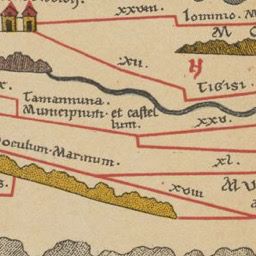 xxviii.
Iomnio. M
xii.
Tigisi.
x.
Tamannuna.
Municipium · et castel
lum.
xxv.
Poculum · Marinum.
xl.
xviii
s.